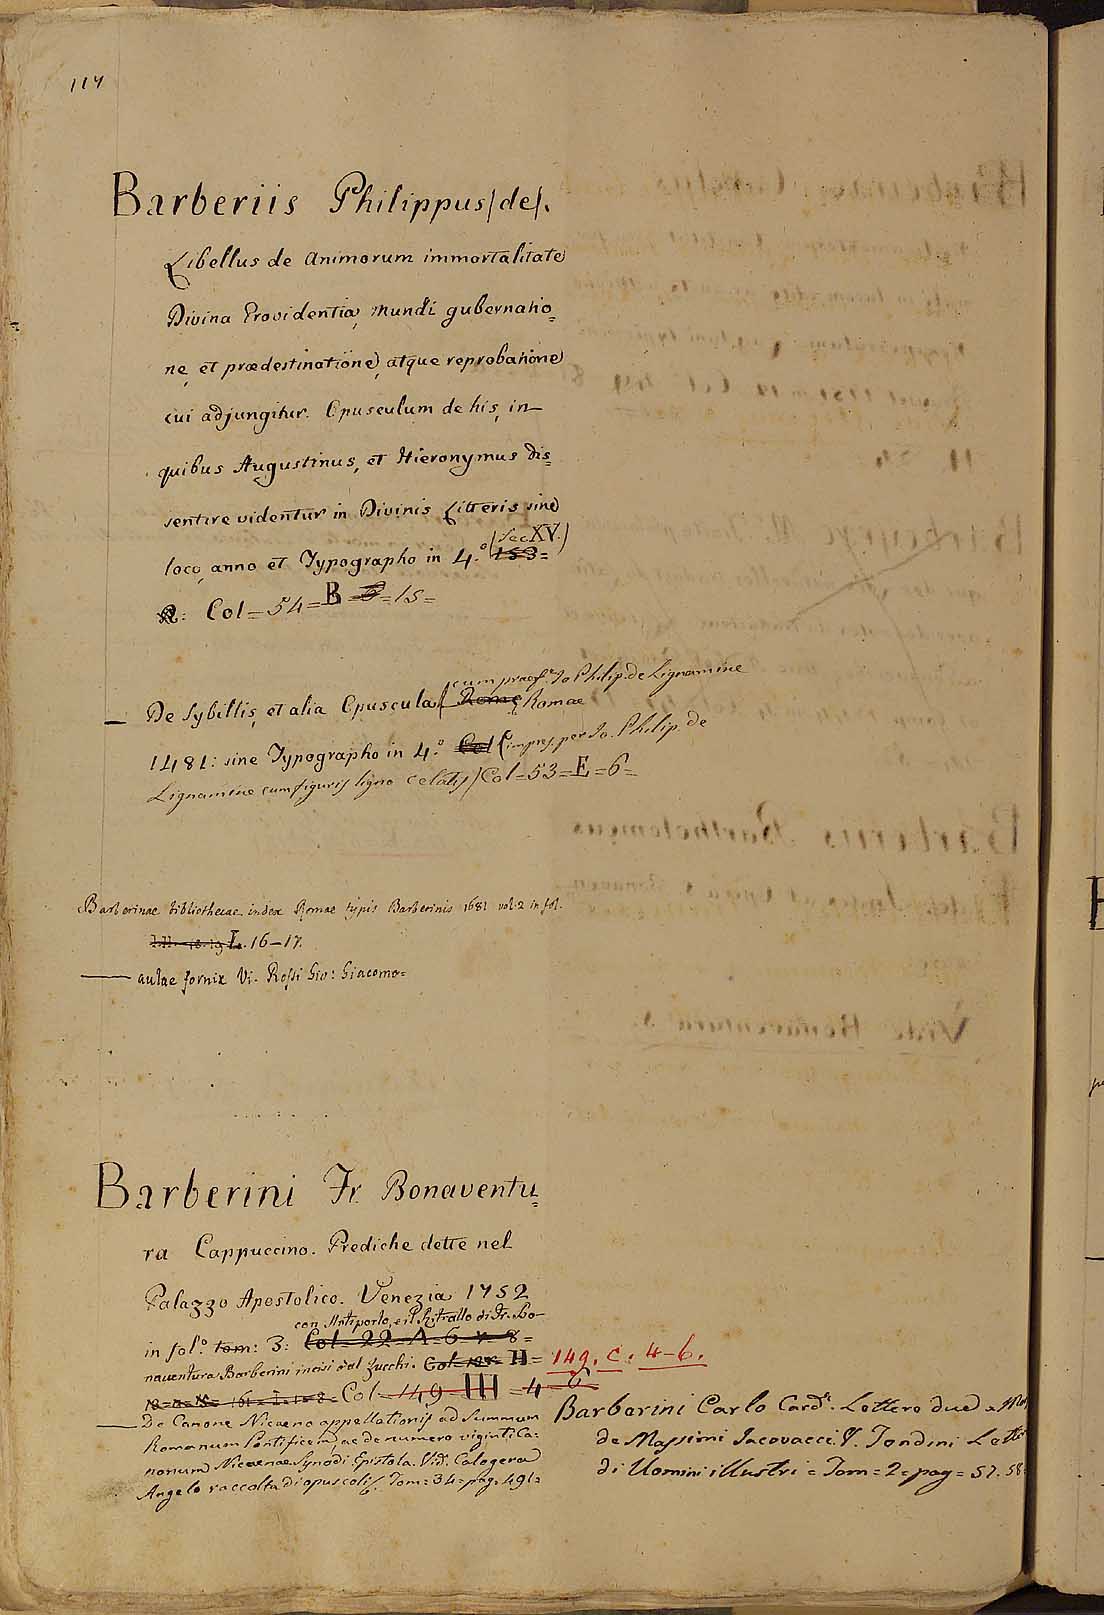 117
Barberiis Philippus (de).
Libellus de Animorum immortalitate
Divina Providentia, mundi gubernatio=
ne, et prædestinatione, atque reprobatione
cui adjungitur. Opusculum de his, in
quibus Augustinus, et Hieronymus dis=
sentire videntur in Divinis Litteris sine
(sec. XV.)
loco, anno et Typographo in 4.° 153=
Col=54=B=15=
cum praef.e Jo Philip. de Lignamine
— De Sybillis, et alia Opuscula( Rome Romae
1481: sine Typographo in 4.° Col (impres. per Jo. Philip. de
Lignamine cum figuris ligno celatis) Col=53=E=6=
Barberinae Bibliothecae index Romae typis Barberinis 1681 vol. 2 in fol.
L. 16–17.
— aulae fornix Vi. Rossi Gio: Giacomo=
Barberini Fr. Bonaventu=
ra Cappuccino. Prediche dette nel
Palazzo Apostolico. Venezia 1752
con Antiporto, e il Ritratto di Fr. Bo-
in fol.° tom: 3: Col=22=A=6=7=8=
naventura Barberini incisi dal Zucchi. Col H=
149. C. 4-6.
Col=149 III=4=6
— De Canone Nicaeno appellationis ad Summum
Romanum Pontificem, ac de numero viginti Ca=
nonum Nicaenae Synodi Epistola. Vid. Calogerà
Angelo raccolta di opuscoli. Tom=34=pag=491=
Barberini Carlo Card.e Lettere due a
de Massimi Jacovacci. V. Tondini
di Uomini illustri=Tom=2=pag=57.58=